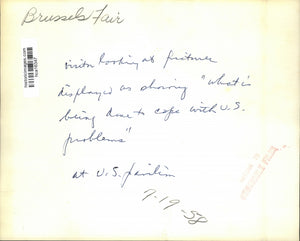 Brussels Fair
visitor looking at pictures
displayed as showing "what is
being done to cope with U.S.
problems"
at U.S. pavilion
7-19-58